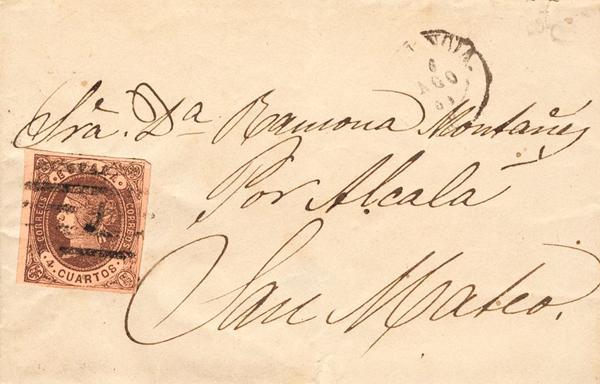 6
AGO
Sra. Da. Ramona Montañés
Por Alcalá
San Mateo.
ESPAÑA
CORREOS
CORREOS
4. CUARTOS